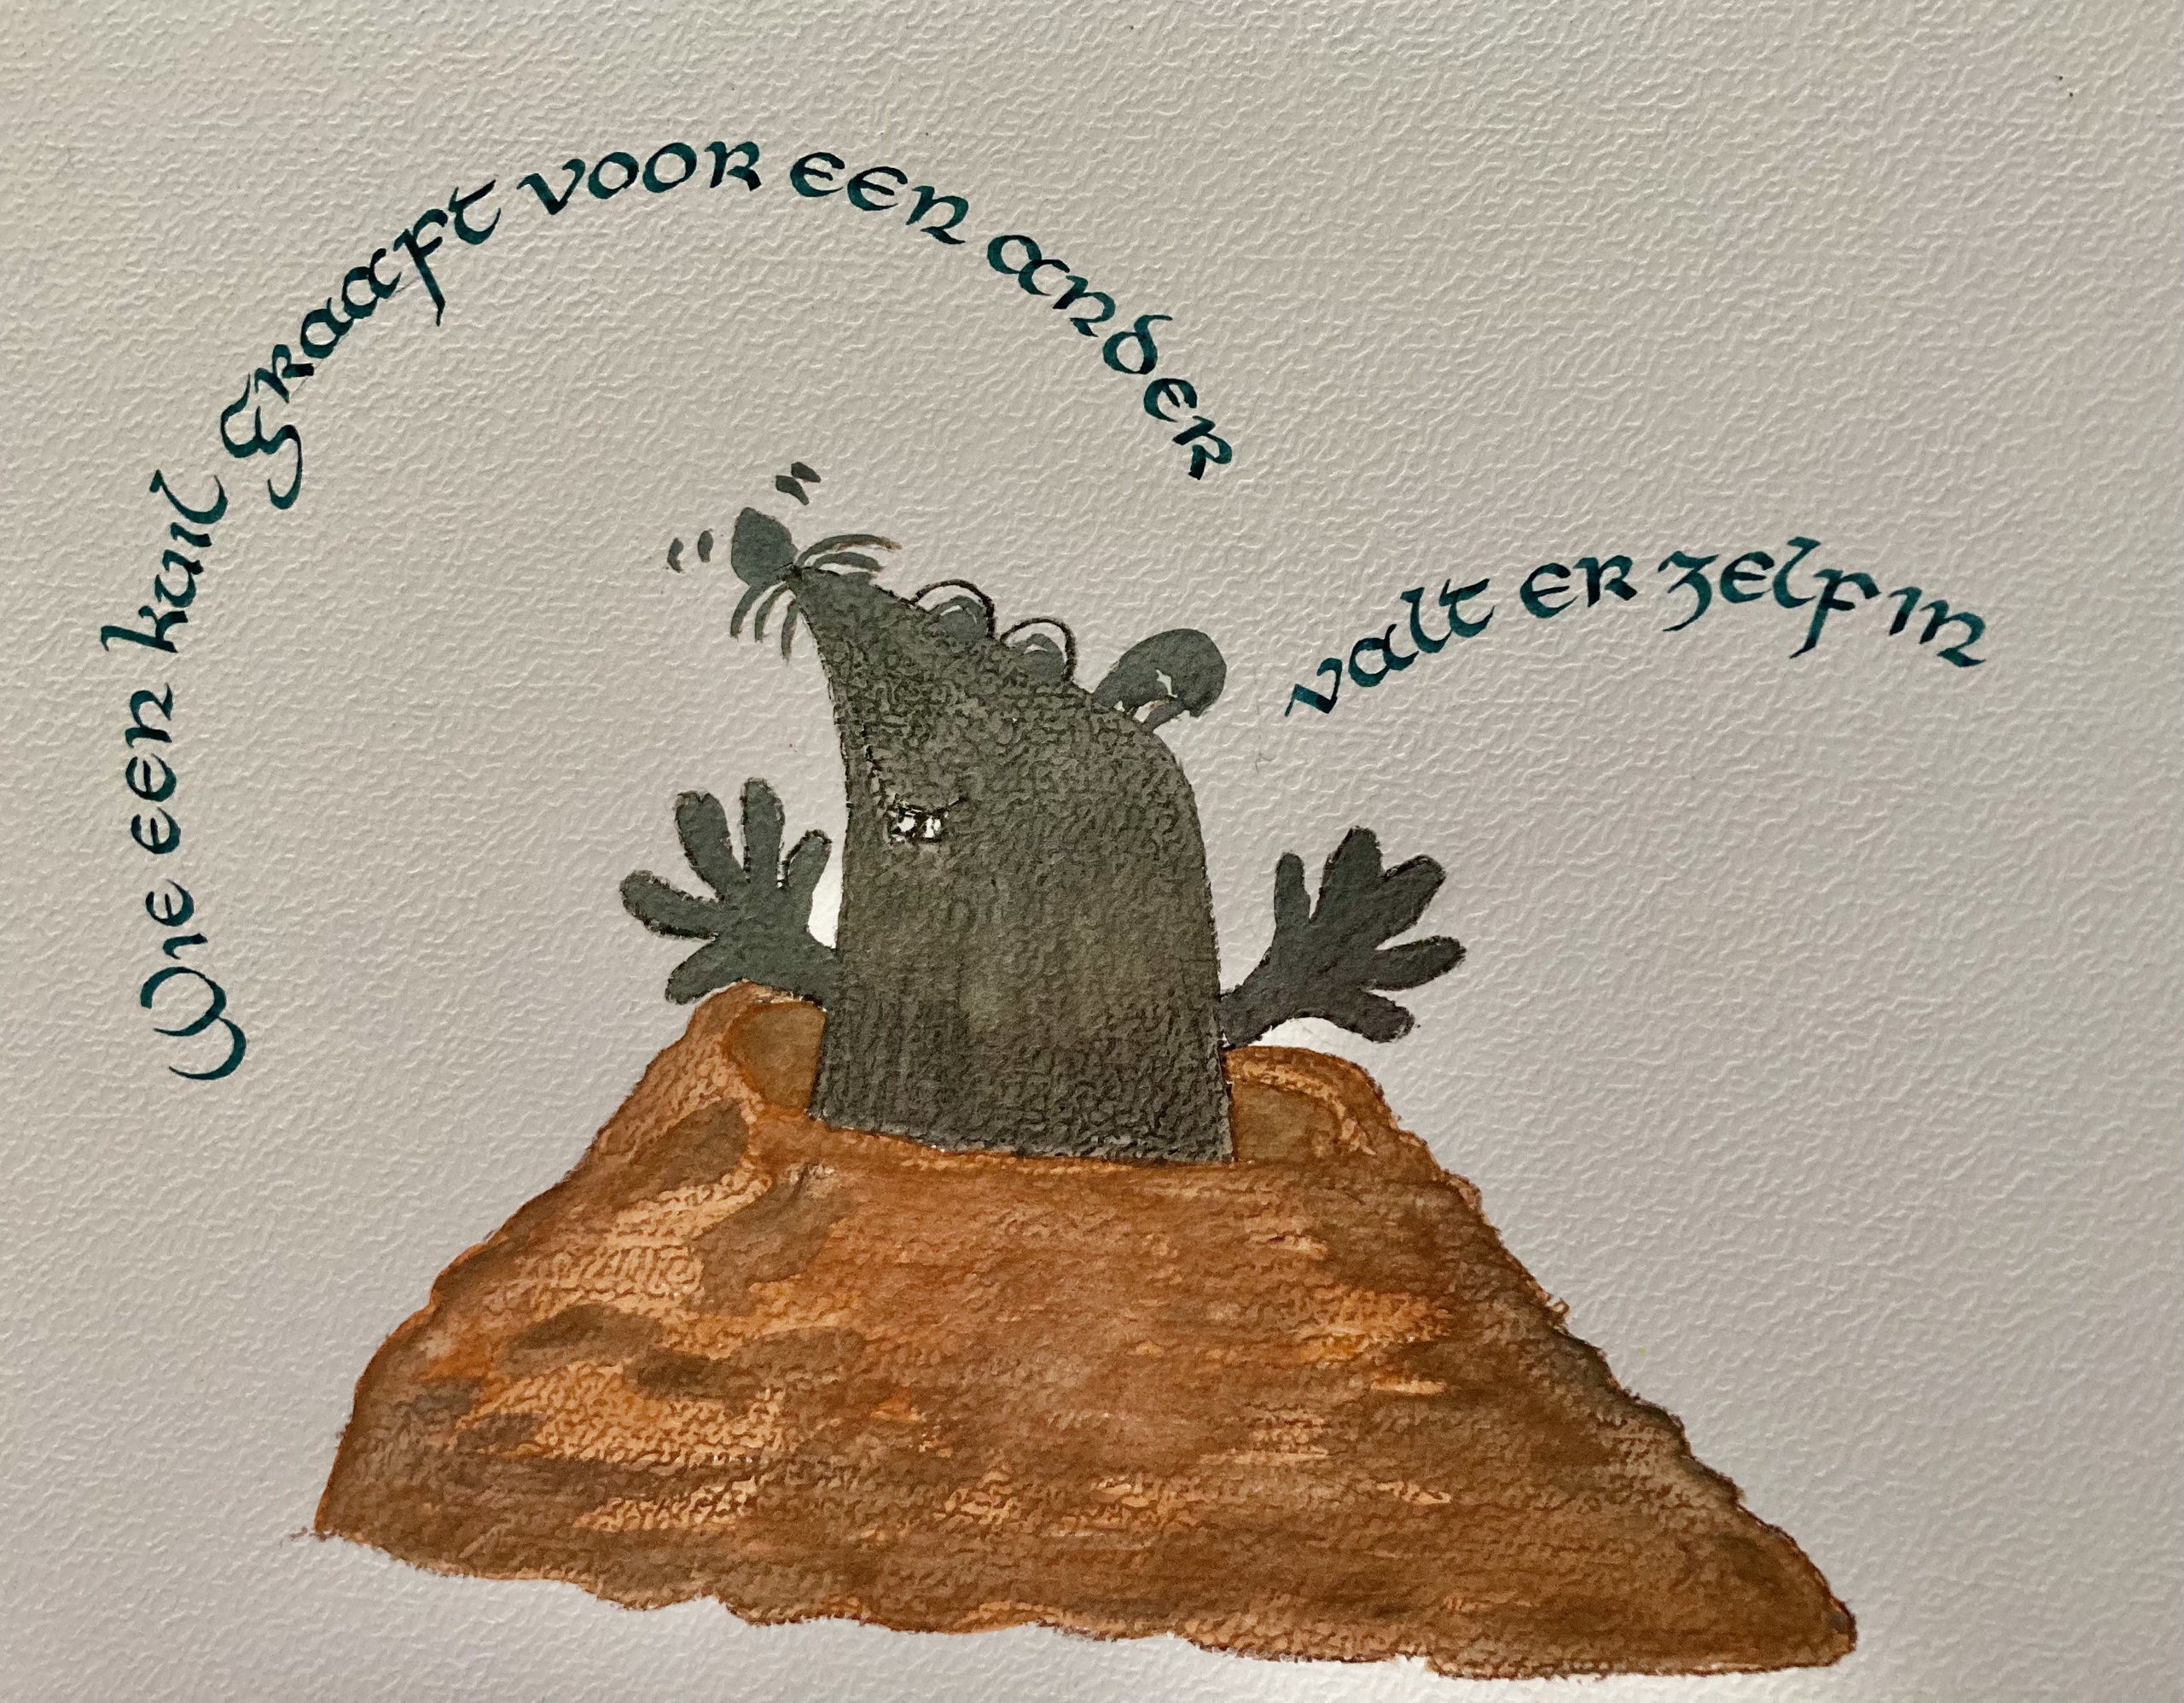 Wie een kuil Graaft voor een ander
valt er zelf in